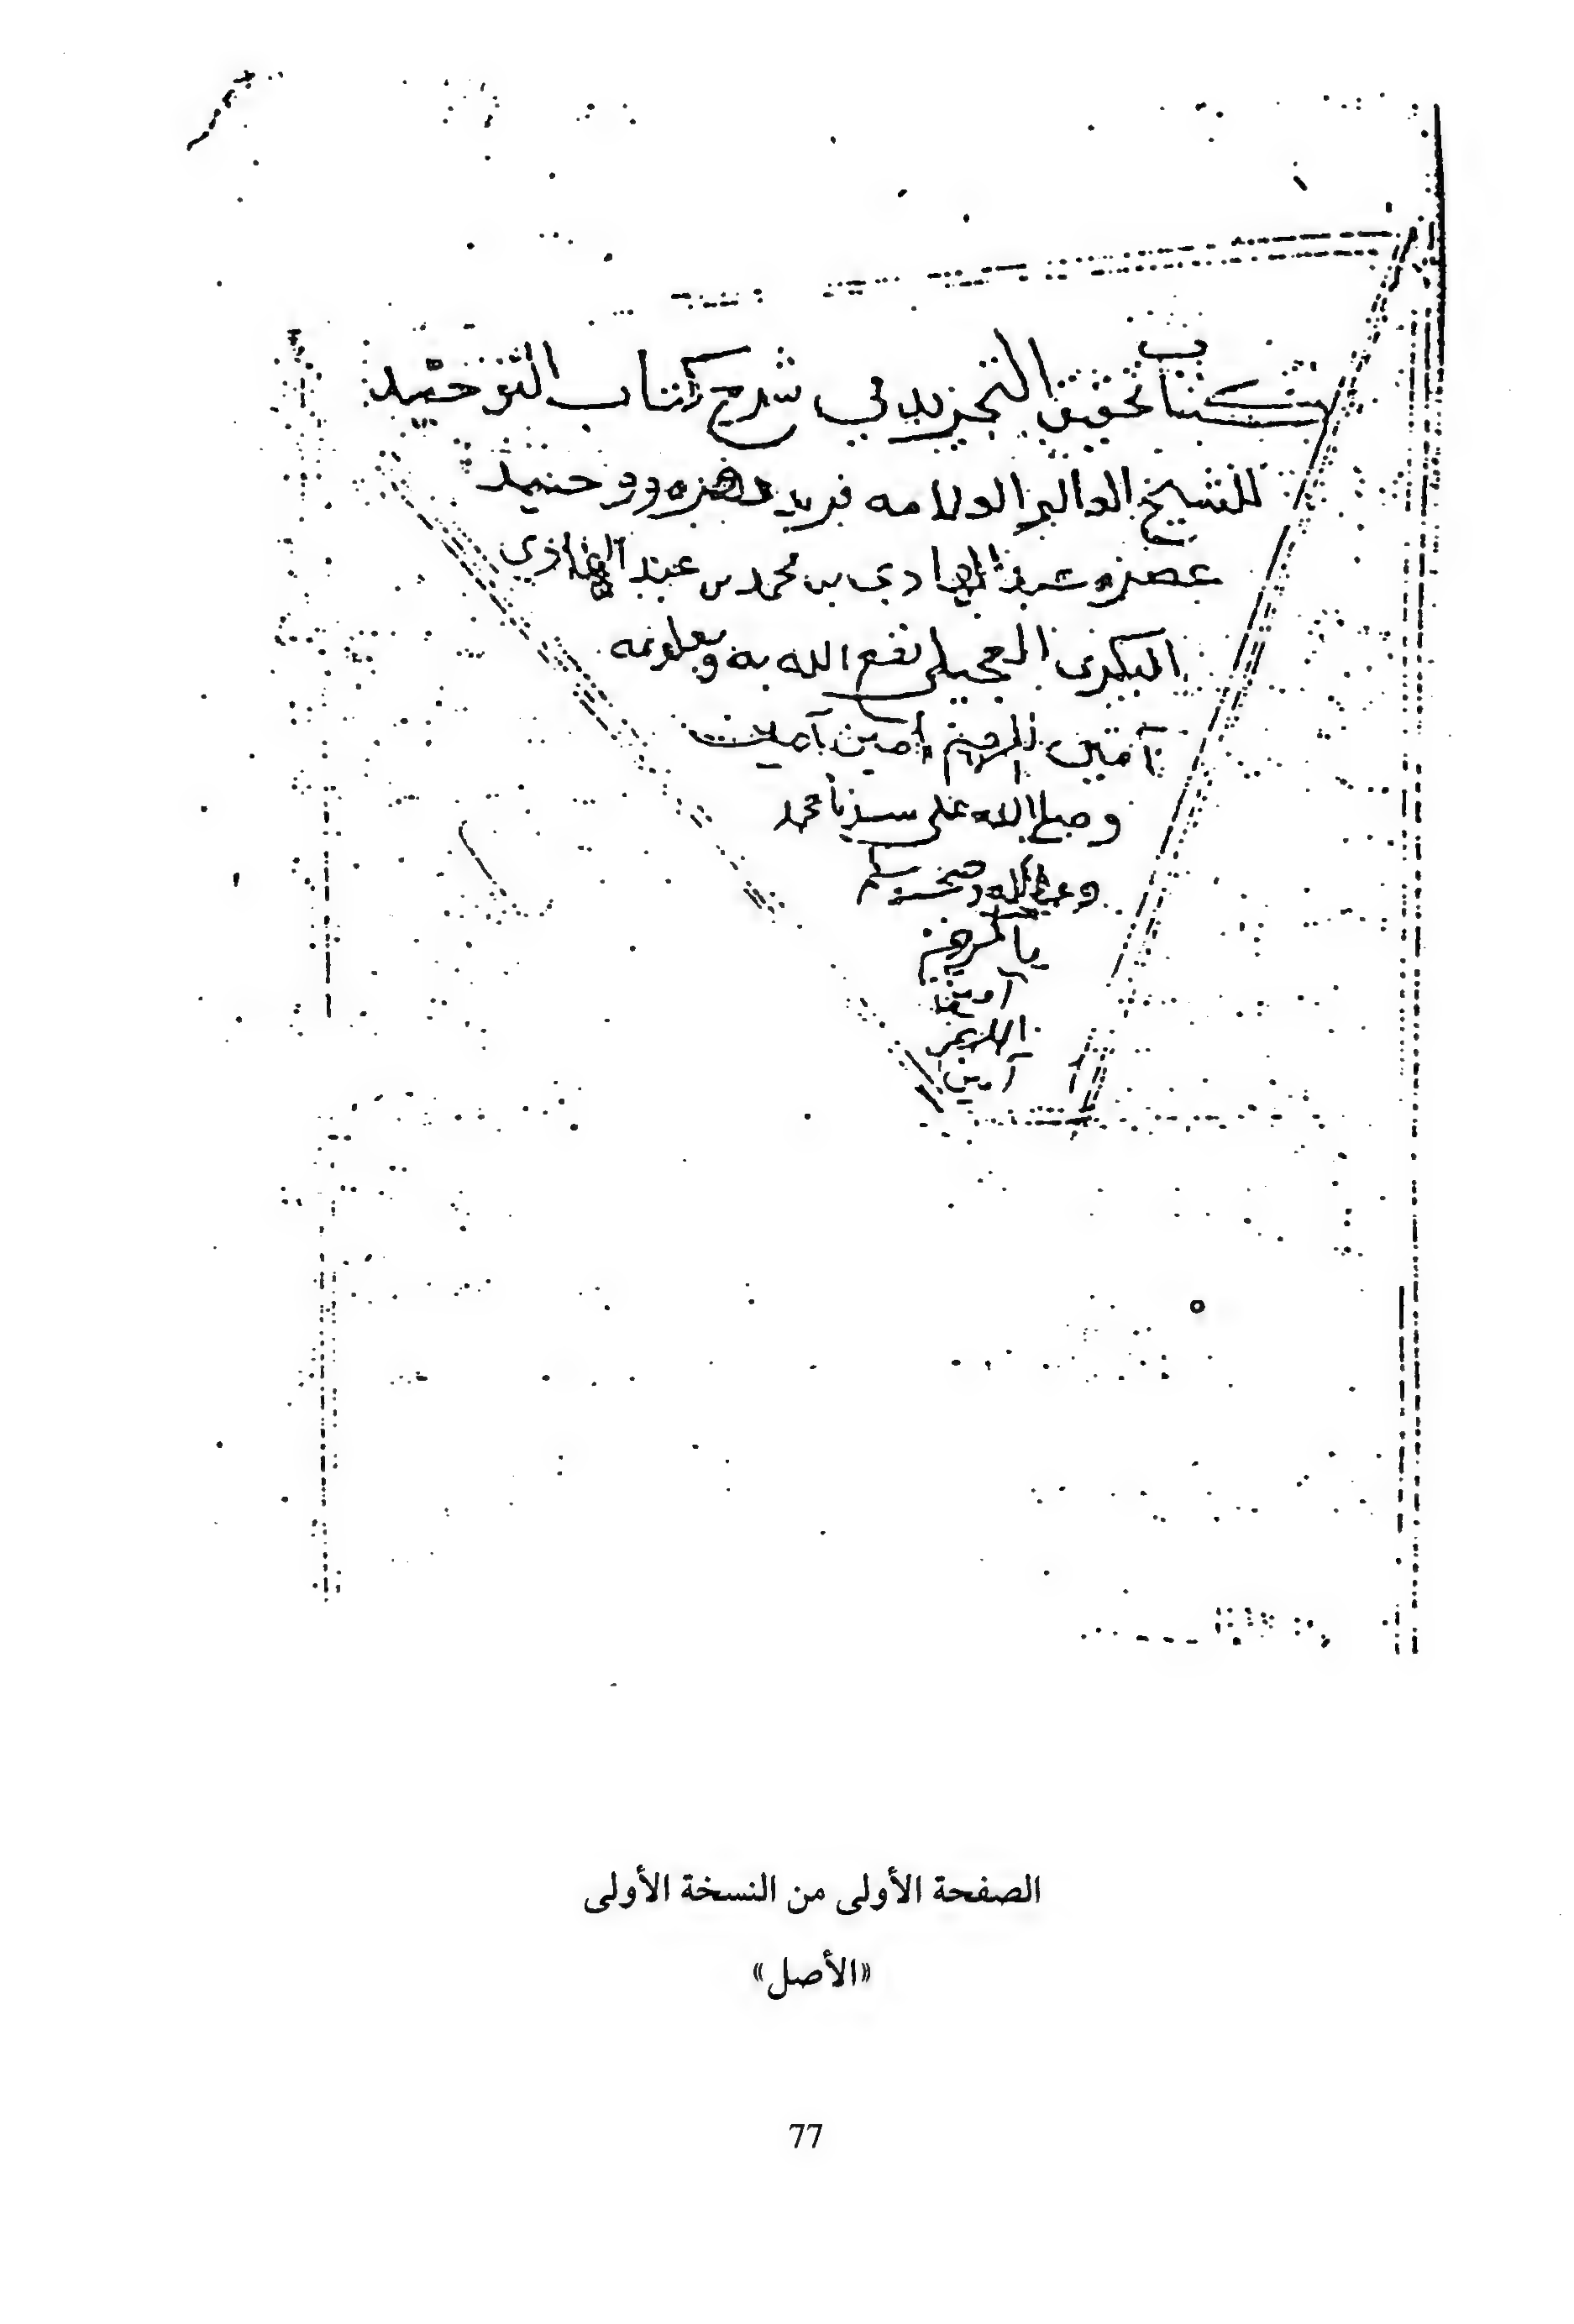 كتاب تحقيق التجريد في شرح كتاب التوحيد
للشيخ العالم العلامه فريد دهره ووحيد
عصره عبد الهادي بن محمد بن عبد الهادي
البكري العجيلي نفع الله به وبعلومه
آمين اللهم آمين آمين
وصلى الله على سيدنا محمد
وعلى اله وصحبه وسلم
يا كريم
آمين
اللهم
آمين
الصفحة الأولى من النسخة الأولى
«الأصل»
77